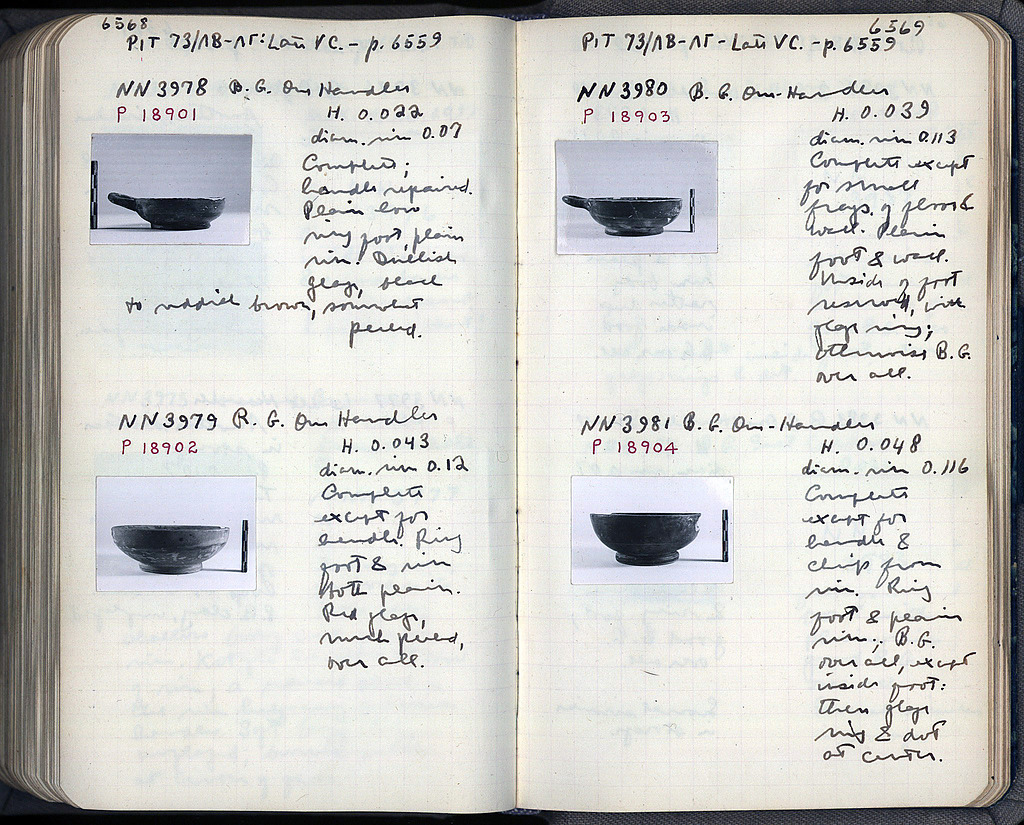 6568
PIT 73/ΛB-ΛΓ: Late VC. - p. 6559
NN 3978 B. G. One Handler
P 18901
H. 0.022
diam. rim 0.07
Complete;
handle repaired.
Plain low
ring foot, plain
rim. Dullish
glaze, black
to reddish brown, somewhat
peeled.
NN 3979 R. G. One Handler
P 18902
H. 0.043
diam. rim 0.12
Complete
except for
handle. Ring
foot & rim
both plain.
Red glaze,
much peeled,
over all.
6569
PIT 73/ΛB-ΛΓ - Late VC. - p. 6559
NN 3980 B. G. One-Handler
P 18903
H. 0.039
diam. rim 0.113
Complete except
for small
frags. of floor &
wall. Plain
foot & wall.
Inside of foot
reserved, with
glaze ring;
otherwise B. G.
over all.
NN 3981 B. G. One-Handler
P 18904
H. 0.048
diam. rim 0.116
Complete
except for
handle &
chip from
rim. Ring
foot & plain
rim; B. G.
over all, except
inside foot:
there glaze
ring & dot
at center.